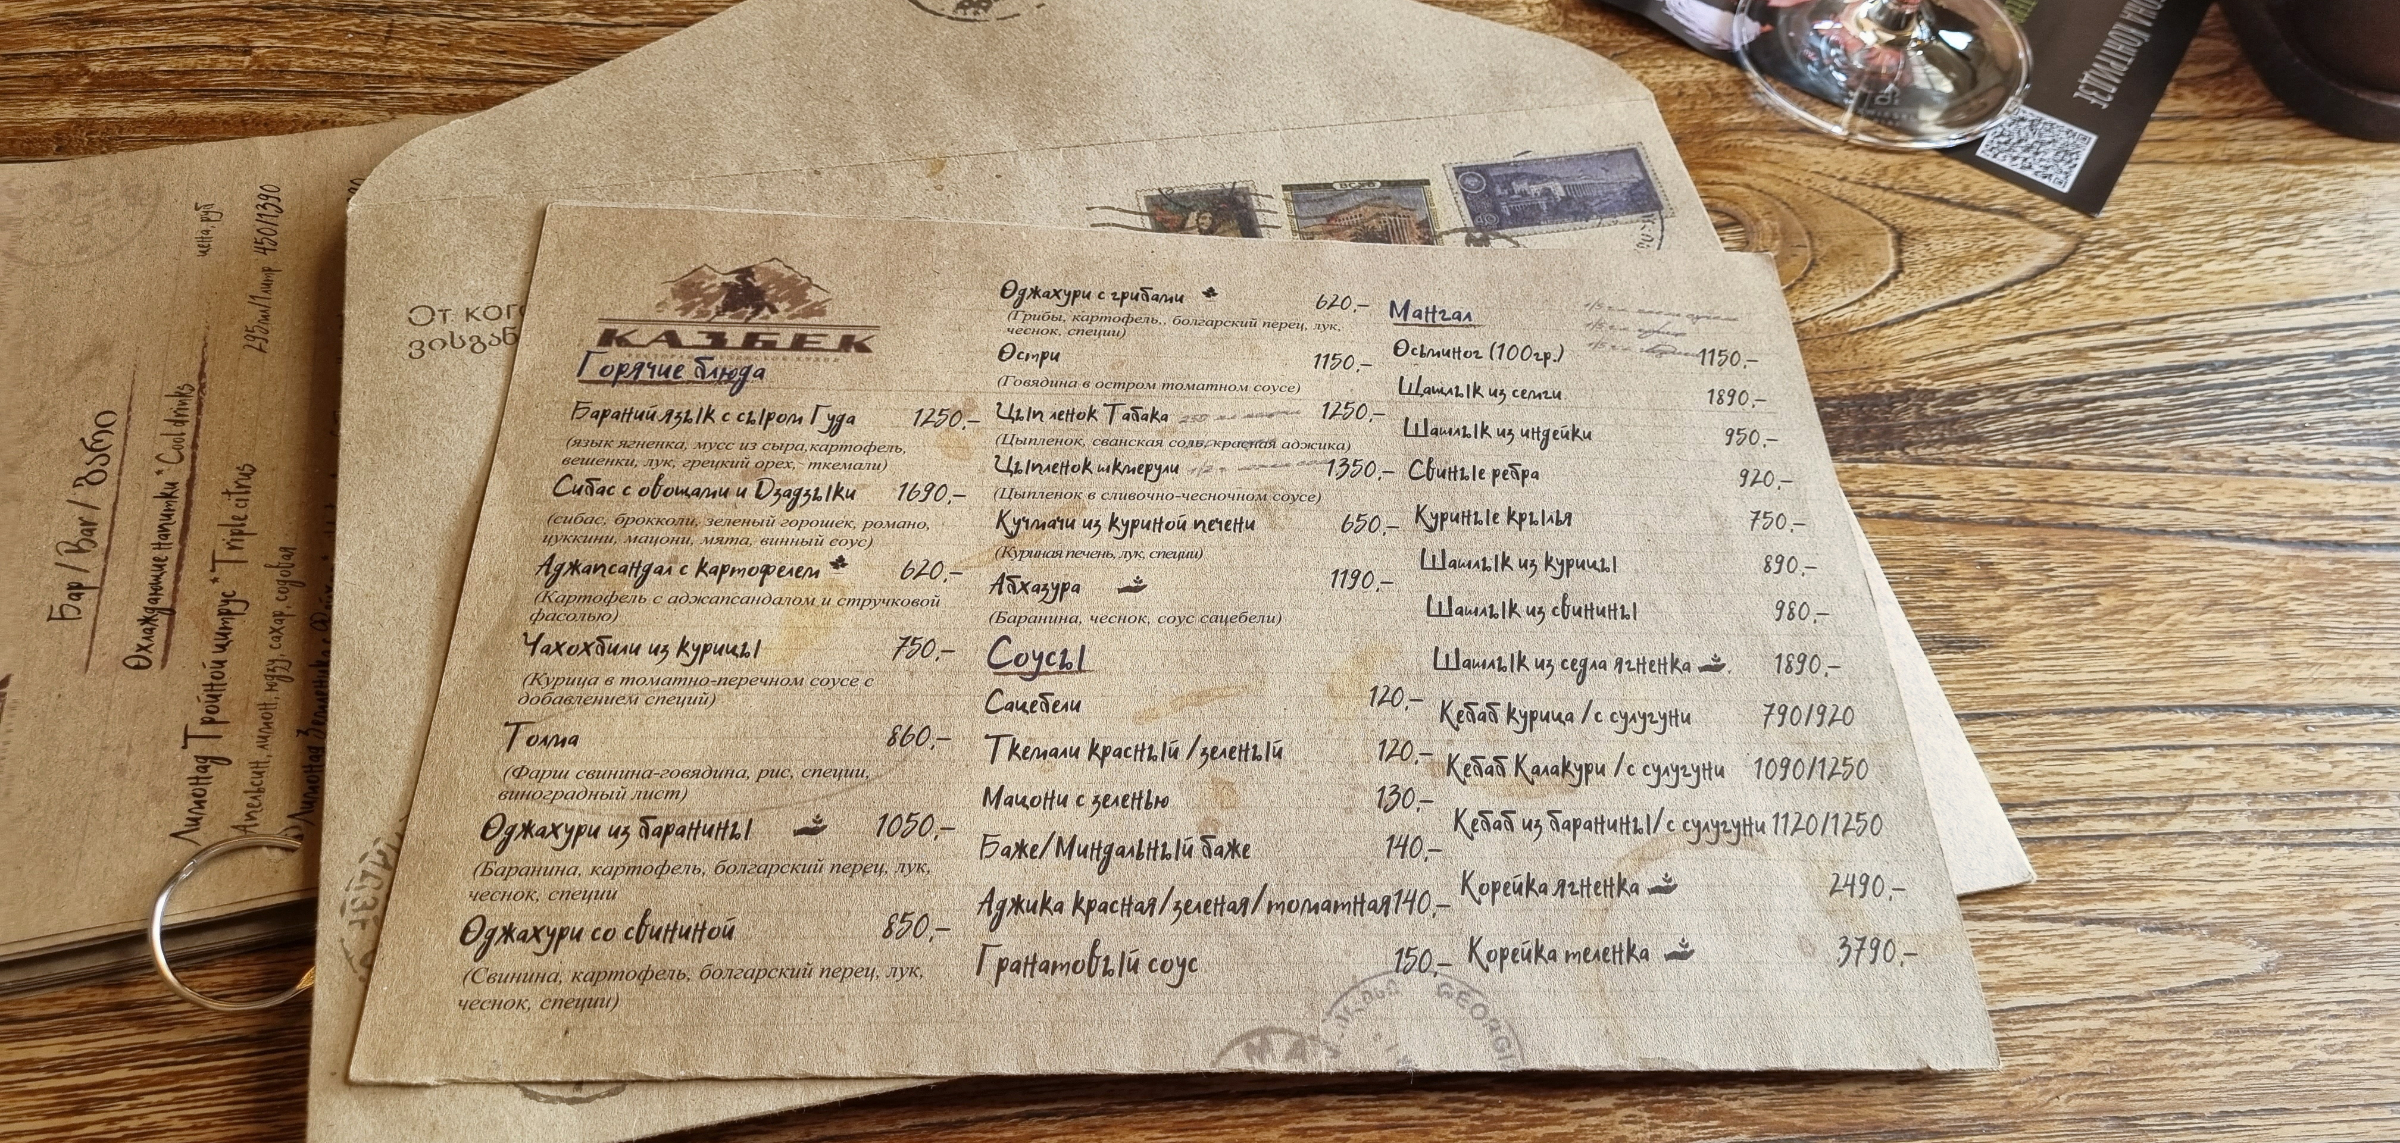 От кого
ვისგან
Бар / Bar / ბარი
Охлаждающие напитки * Cool drinks
цена, руб
Лимонад Тройной цитрус * Triple citrus
295мл/1литр 450/1390
Апельсин, лимон, юдзу, сахар, содовая
КАЗБЕК
Горячие блюда
Бараний язык с сыром Гуда 1250,-
(язык ягненка, мусс из сыра,картофель,
вешенки, лук, грецкий орех, ткемали)
Сибас с овощами и Дзадзыки 1690,-
(сибас, брокколи, зеленый горошек, романо,
цуккини, мацони, мята, винный соус)
Аджапсандал с картофелем 620,-
(Картофель с аджапсандалом и стручковой
фасолью)
Чахохбили из курицы 750,-
(Курица в томатно-перечном соусе с
добавлением специй)
Толма 860,-
(Фарш свинина-говядина, рис, специи,
виноградный лист)
Оджахури из баранины 1050,-
(Баранина, картофель, болгарский перец, лук,
чеснок, специи
Оджахури со свининой 850,-
(Свинина, картофель, болгарский перец, лук,
чеснок, специи)
Оджахури с грибами 620,-
(Грибы, картофель,. болгарский перец, лук,
чеснок, специи)
Остри 1150,-
(Говядина в остром томатном соусе)
Цыпленок Табака 1250,-
(Цыпленок, сванская соль, красная аджика)
Цыпленок шкмерули 1350,-
(Цыпленок в сливочно-чесночном соусе)
Кучмачи из куриной печени 650,-
(Куриная печень, лук, специи)
Абхазура 1190,-
(Баранина, чеснок, соус сацебели)
Соусы
Сацебели 120,-
Ткемали красный /зеленый 120,-
Мацони с зеленью 130,-
Баже/Миндальный баже 140,-
Аджика красная/зеленая/томатная 140,-
Гранатовый соус 150,-
Мангал
Осьминог (100гр.) 1150,-
Шашлык из семги 1890,-
Шашлык из индейки 950,-
Свиные ребра 920,-
Куриные крылья 750,-
Шашлык из курицы 890,-
Шашлык из свинины 980,-
Шашлык из седла ягненка 1890,-
Кебаб курица /с сулугуни 790/920
Кебаб Калакури /с сулугуни 1090/1250
Кебаб из баранины/с сулугуни 1120/1250
Корейка ягненка 2490,-
Корейка теленка 3790,-
GEORGI